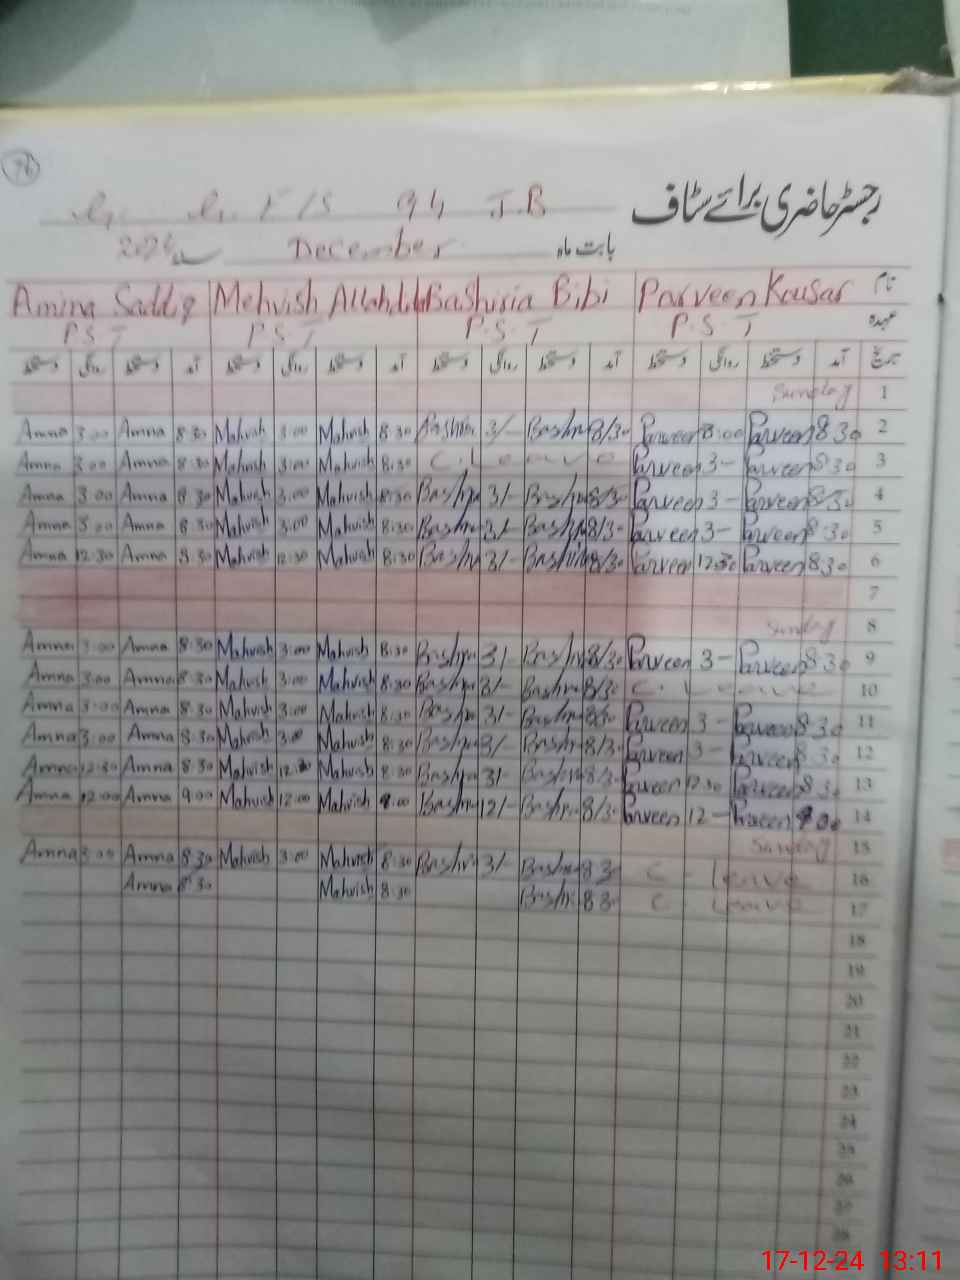 76
رجسٹر حاضری برائے سٹاف
E/S 94 J.B
بابت ماہ December سنہ 2024
نام Parveen Kousar Bashiria Bibi Mehvish Allahditta Amina Saddiq
عہدہ P.S.T P.S.T P.S.T P.S.T
تاریخ آمد دستخط روانگی دستخط آمد دستخط روانگی دستخط آمد دستخط روانگی دستخط آمد دستخط روانگی دستخط
Sunday 1
Amna 3:00 Amna 8:30 Mahvish 3:00 Mahvish 8:30 Bashir 3/- Bashir 8/30 Parveen 3:00 Parveen 8:30 2
Amna 3:00 Amna 8:30 Mahvish 3:00 Mahvish 8:30 C. Leave Parveen 3- Parveen 8:30 3
Amna 3:00 Amna 8:30 Mahvish 3:00 Mahvish 8:30 Bashir 3/- Bashir 8/30 Parveen 3- Parveen 8/30 4
Amna 3:00 Amna 8:30 Mahvish 3:00 Mahvish 8:30 Bashir 3/- Bashir 8/30 Parveen 3- Parveen 8:30 5
Amna 12:30 Amna 8:30 Mahvish 12:30 Mahvish 8:30 Bashir 3/- Bashir 8/30 Parveen 12:30 Parveen 8:30 6
7
Sunday 8
Amna 3:00 Amna 8:30 Mahvish 3:00 Mahvish 8:30 Bashir 3/- Bashir 8/30 Parveen 3- Parveen 8:30 9
Amna 3:00 Amna 8:30 Mahvish 3:00 Mahvish 8:30 Bashir 3/- Bashir 8/30 C. Leave 10
Amna 3:00 Amna 8:30 Mahvish 3:00 Mahvish 8:30 Bashir 3/- Bashir 8/30 Parveen 3- Parveen 8:30 11
Amna 3:00 Amna 8:30 Mahvish 3:00 Mahvish 8:30 Bashir 3/- Bashir 8/30 Parveen 3- Parveen 8:30 12
Amna 12:30 Amna 8:30 Mahvish 12:30 Mahvish 8:30 Bashir 3/- Bashir 8/30 Parveen 12:30 Parveen 8:30 13
Amna 12:00 Amna 9:00 Mahvish 12:00 Mahvish 9:00 Bashir 12/- Bashir 8/30 Parveen 12- Parveen 9:00 14
Sunday 15
Amna 3:00 Amna 8:30 Mahvish 3:00 Mahvish 8:30 Bashir 3/- Bashir 8:30 C. Leave 16
Amna 8:30 Mahvish 8:30 Bashir 8:30 C. Leave 17
18
19
20
21
22
23
24
25
26
27
28
17-12-24 13:11